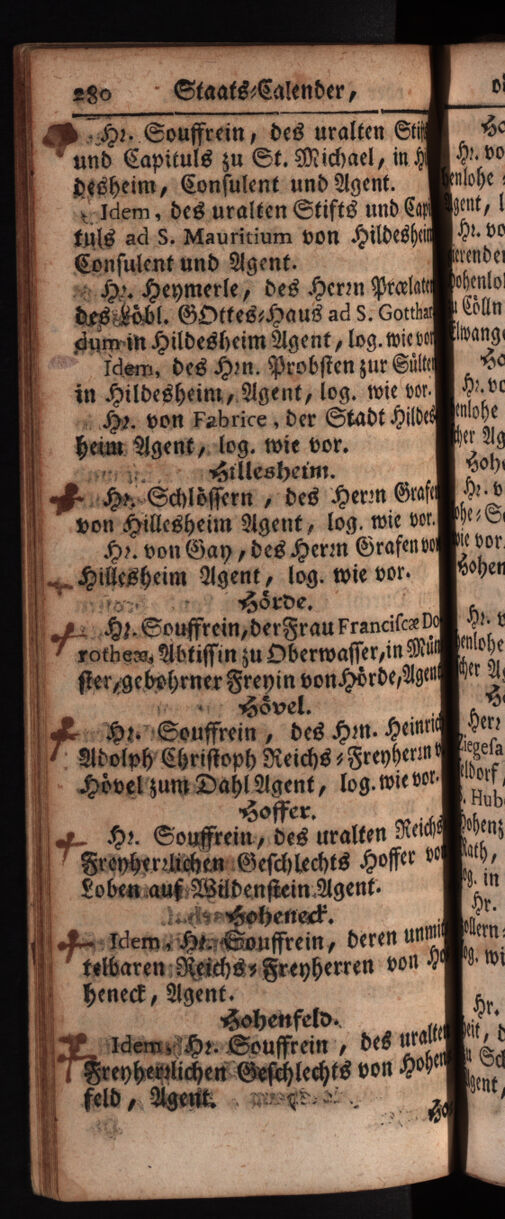 280 Staats-Calender,
Hr. Souffrein, des uralten Stif
und Capituls zu St. Michael, in Hi
desheim, Consulent und Agent.
Idem, des uralten Stifts und Capi
tuls ad S. Mauritium von Hildesheim
Consulent und Agent.
Hr. Heymerle, des Herrn Prælaten
des Löbl. GOttes-Haus ad S. Gotthar
dum in Hildesheim Agent, log. wie vor
Idem, des Hrn. Probsten zur Sülten
in Hildesheim, Agent, log. wie vor.
Hr. von Fabrice, der Stadt Hildes
heim Agent, log. wie vor.
Hillesheim.
Hr. Schlössern, des Herrn Grafen
von Hillesheim Agent, log. wie vor.
Hr. von Gay, des Herrn Grafen von
Hillesheim Agent, log. wie vor.
Hörde.
Hr. Souffrein, der Frau Franciscæ Do
rotheæ, Abtissin zu Oberwasser, in Mün
ster, gebohrner Freyin von Hörde, Agent
Hövel.
Hr. Souffrein, des Hrn. Heinrich
Adolph Christoph Reichs-Freyherrn v
Hövel zum Dahl Agent, log. wie vor.
Hoffer.
Hr. Souffrein, des uralten Reichs
Freyherrlichen Geschlechts Hoffer von
Loben auf Wildenstein Agent.
Hoheneck.
Idem, Hr. Souffrein, deren unmit
telbaren Reichs-Freyherren von Ho
heneck, Agent.
Hohenfeld.
Idem, Hr. Souffrein, des uralten
Freyherrlichen Geschlechts von Hohen
feld, Agent.
Ho